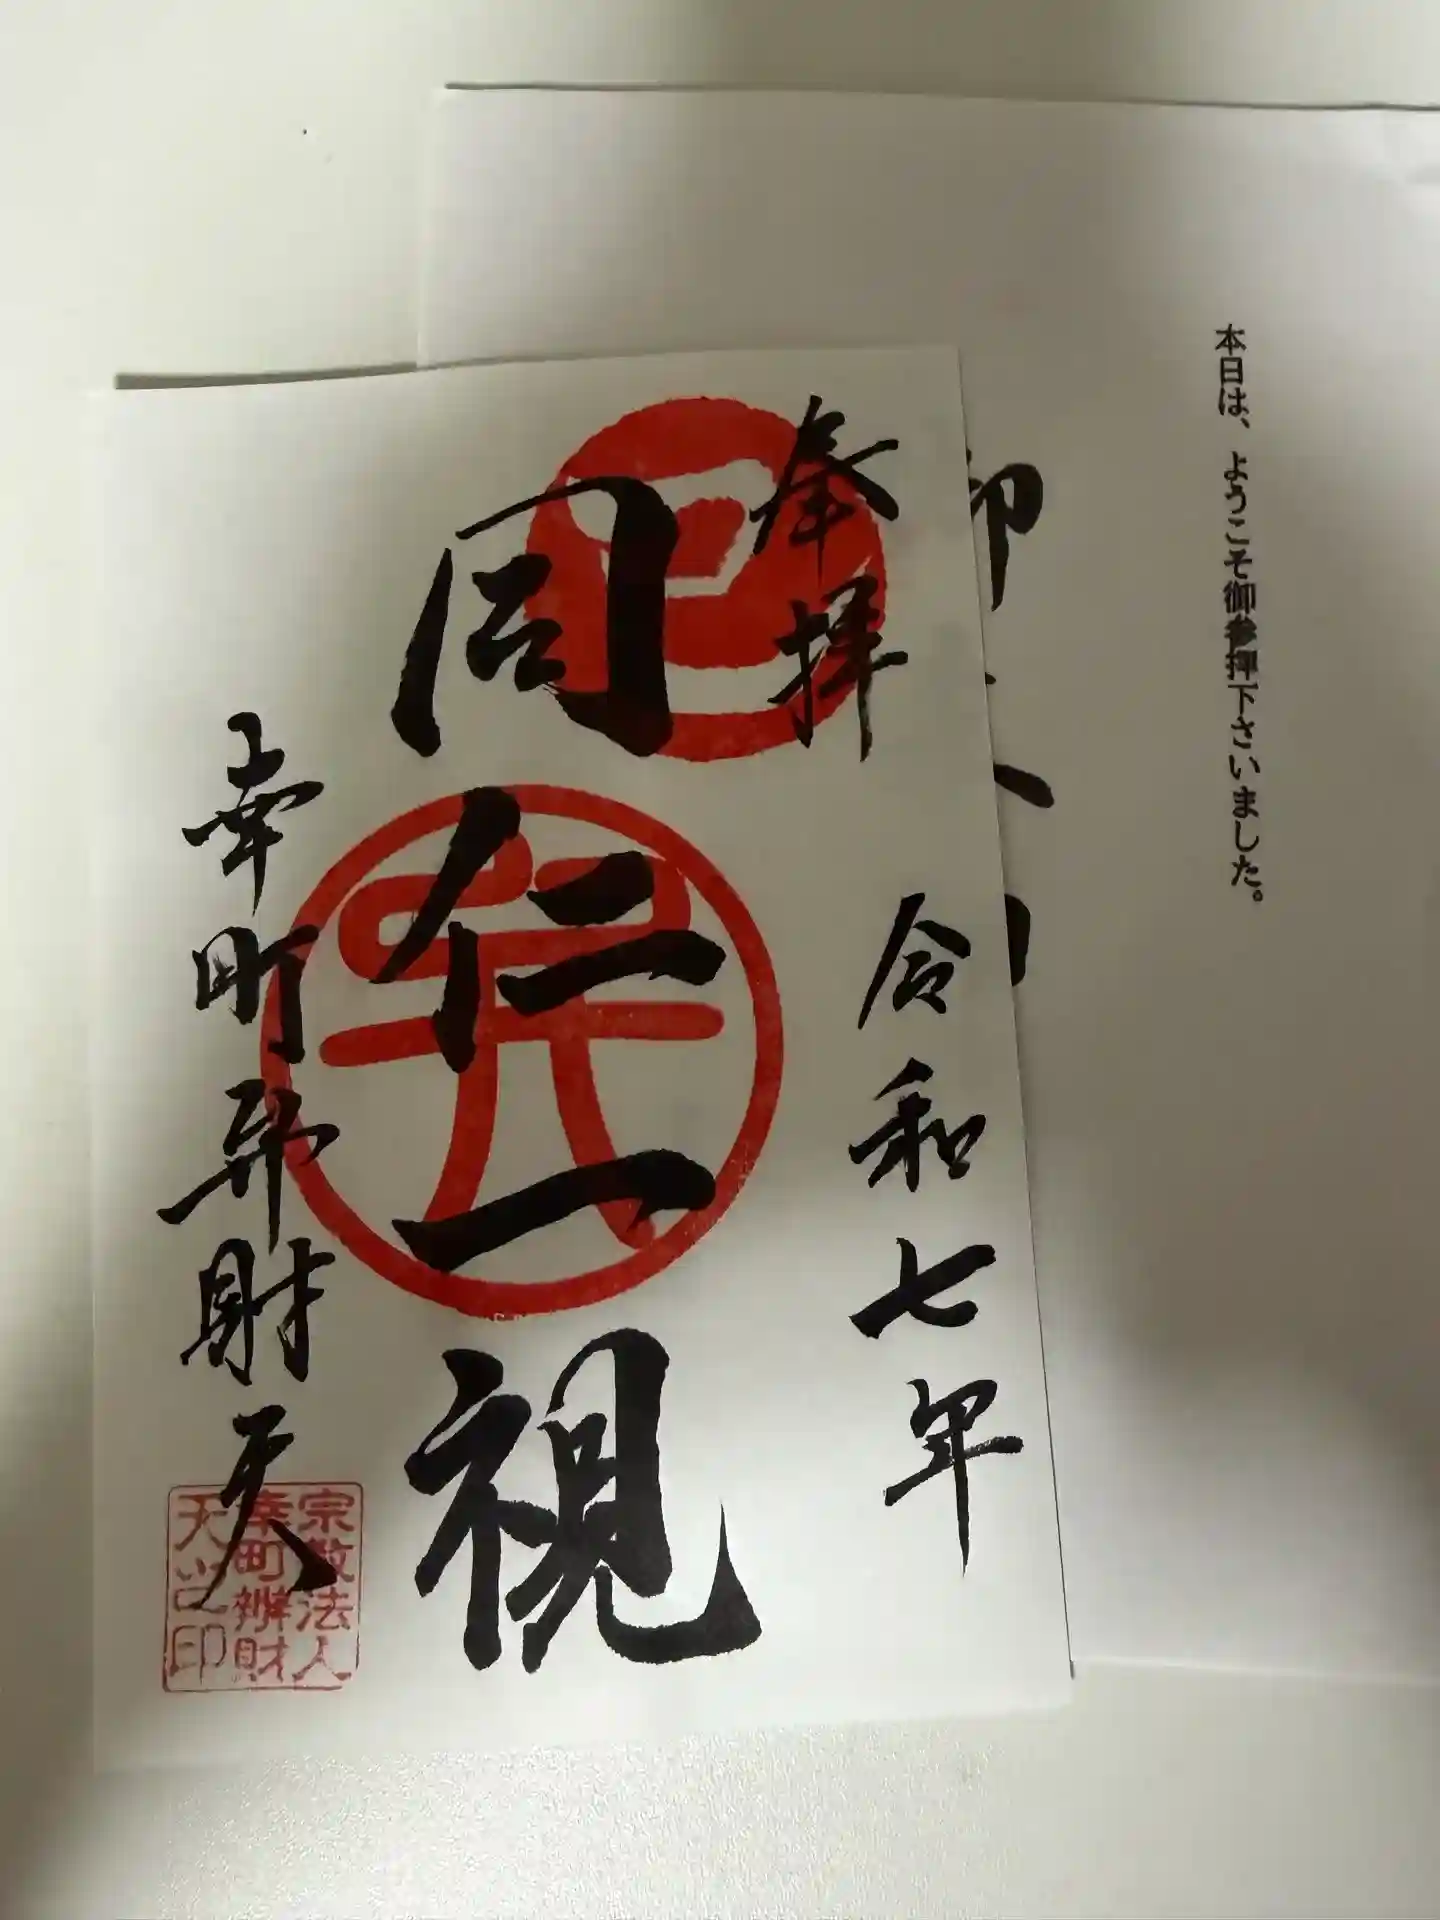 本日は、ようこそ御参拝下さいました。
奉拝
令和七年
同仁一視
幸町弁財天
巳
宗教法人
幸町辨財
天之印